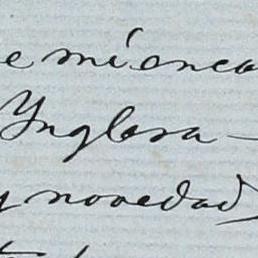 e mí enca
Ynglesa —
y novedad